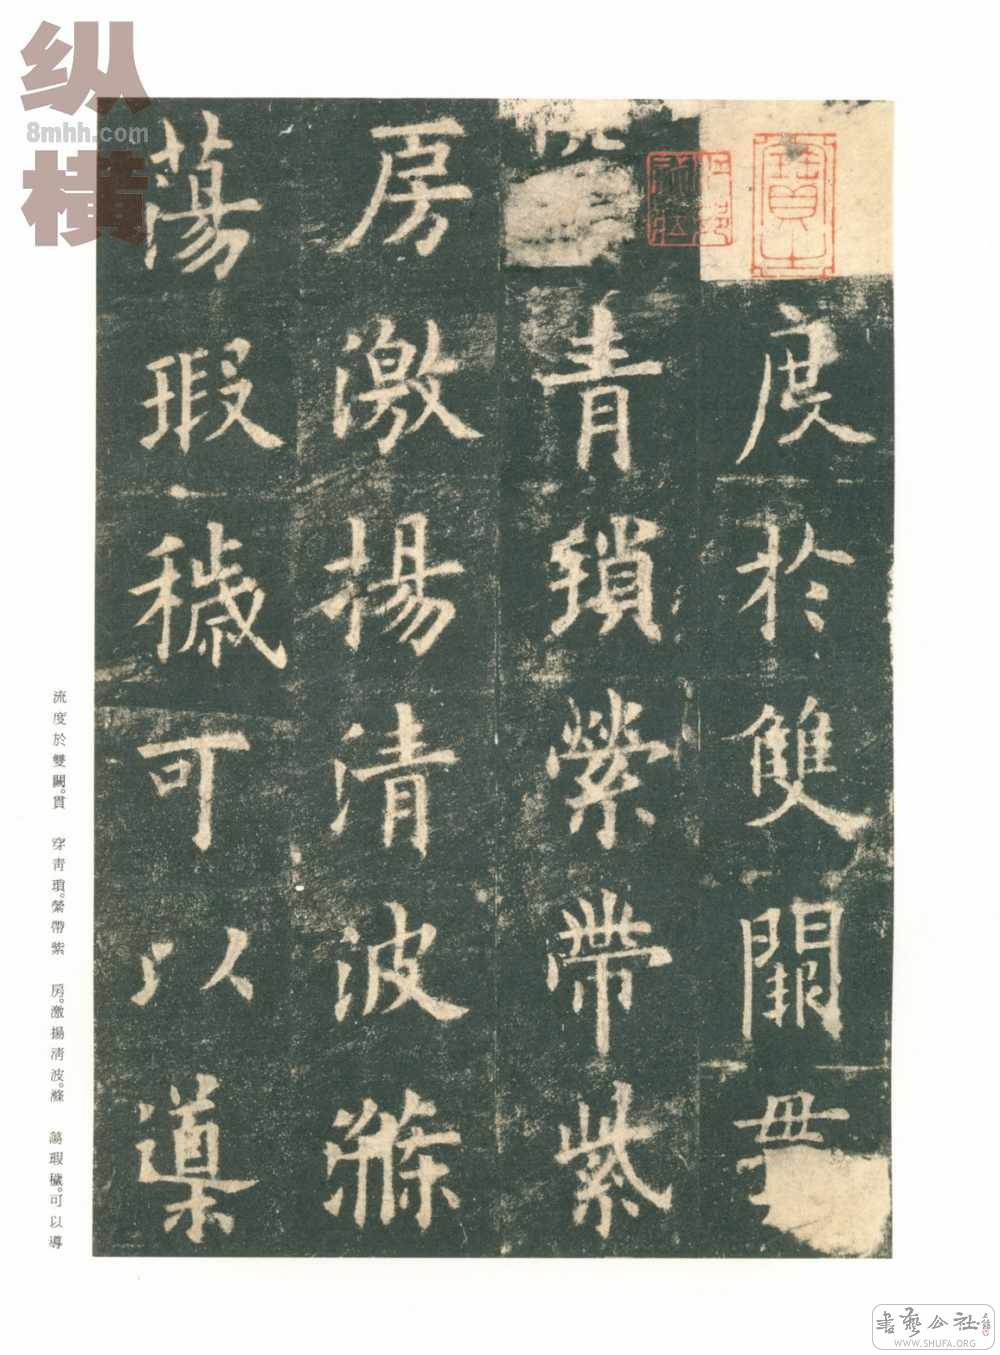 纵
8mhh.com
横
度於雙闕貫
青鎖縈帶紫
房激揚清波滌
蕩瑕穢可以導
流度於雙闕。貫　穿靑瑣。縈帶紫　房。激揚清波。滌　蕩瑕穢。可以導
書藝公社
WWW.SHUFA.ORG